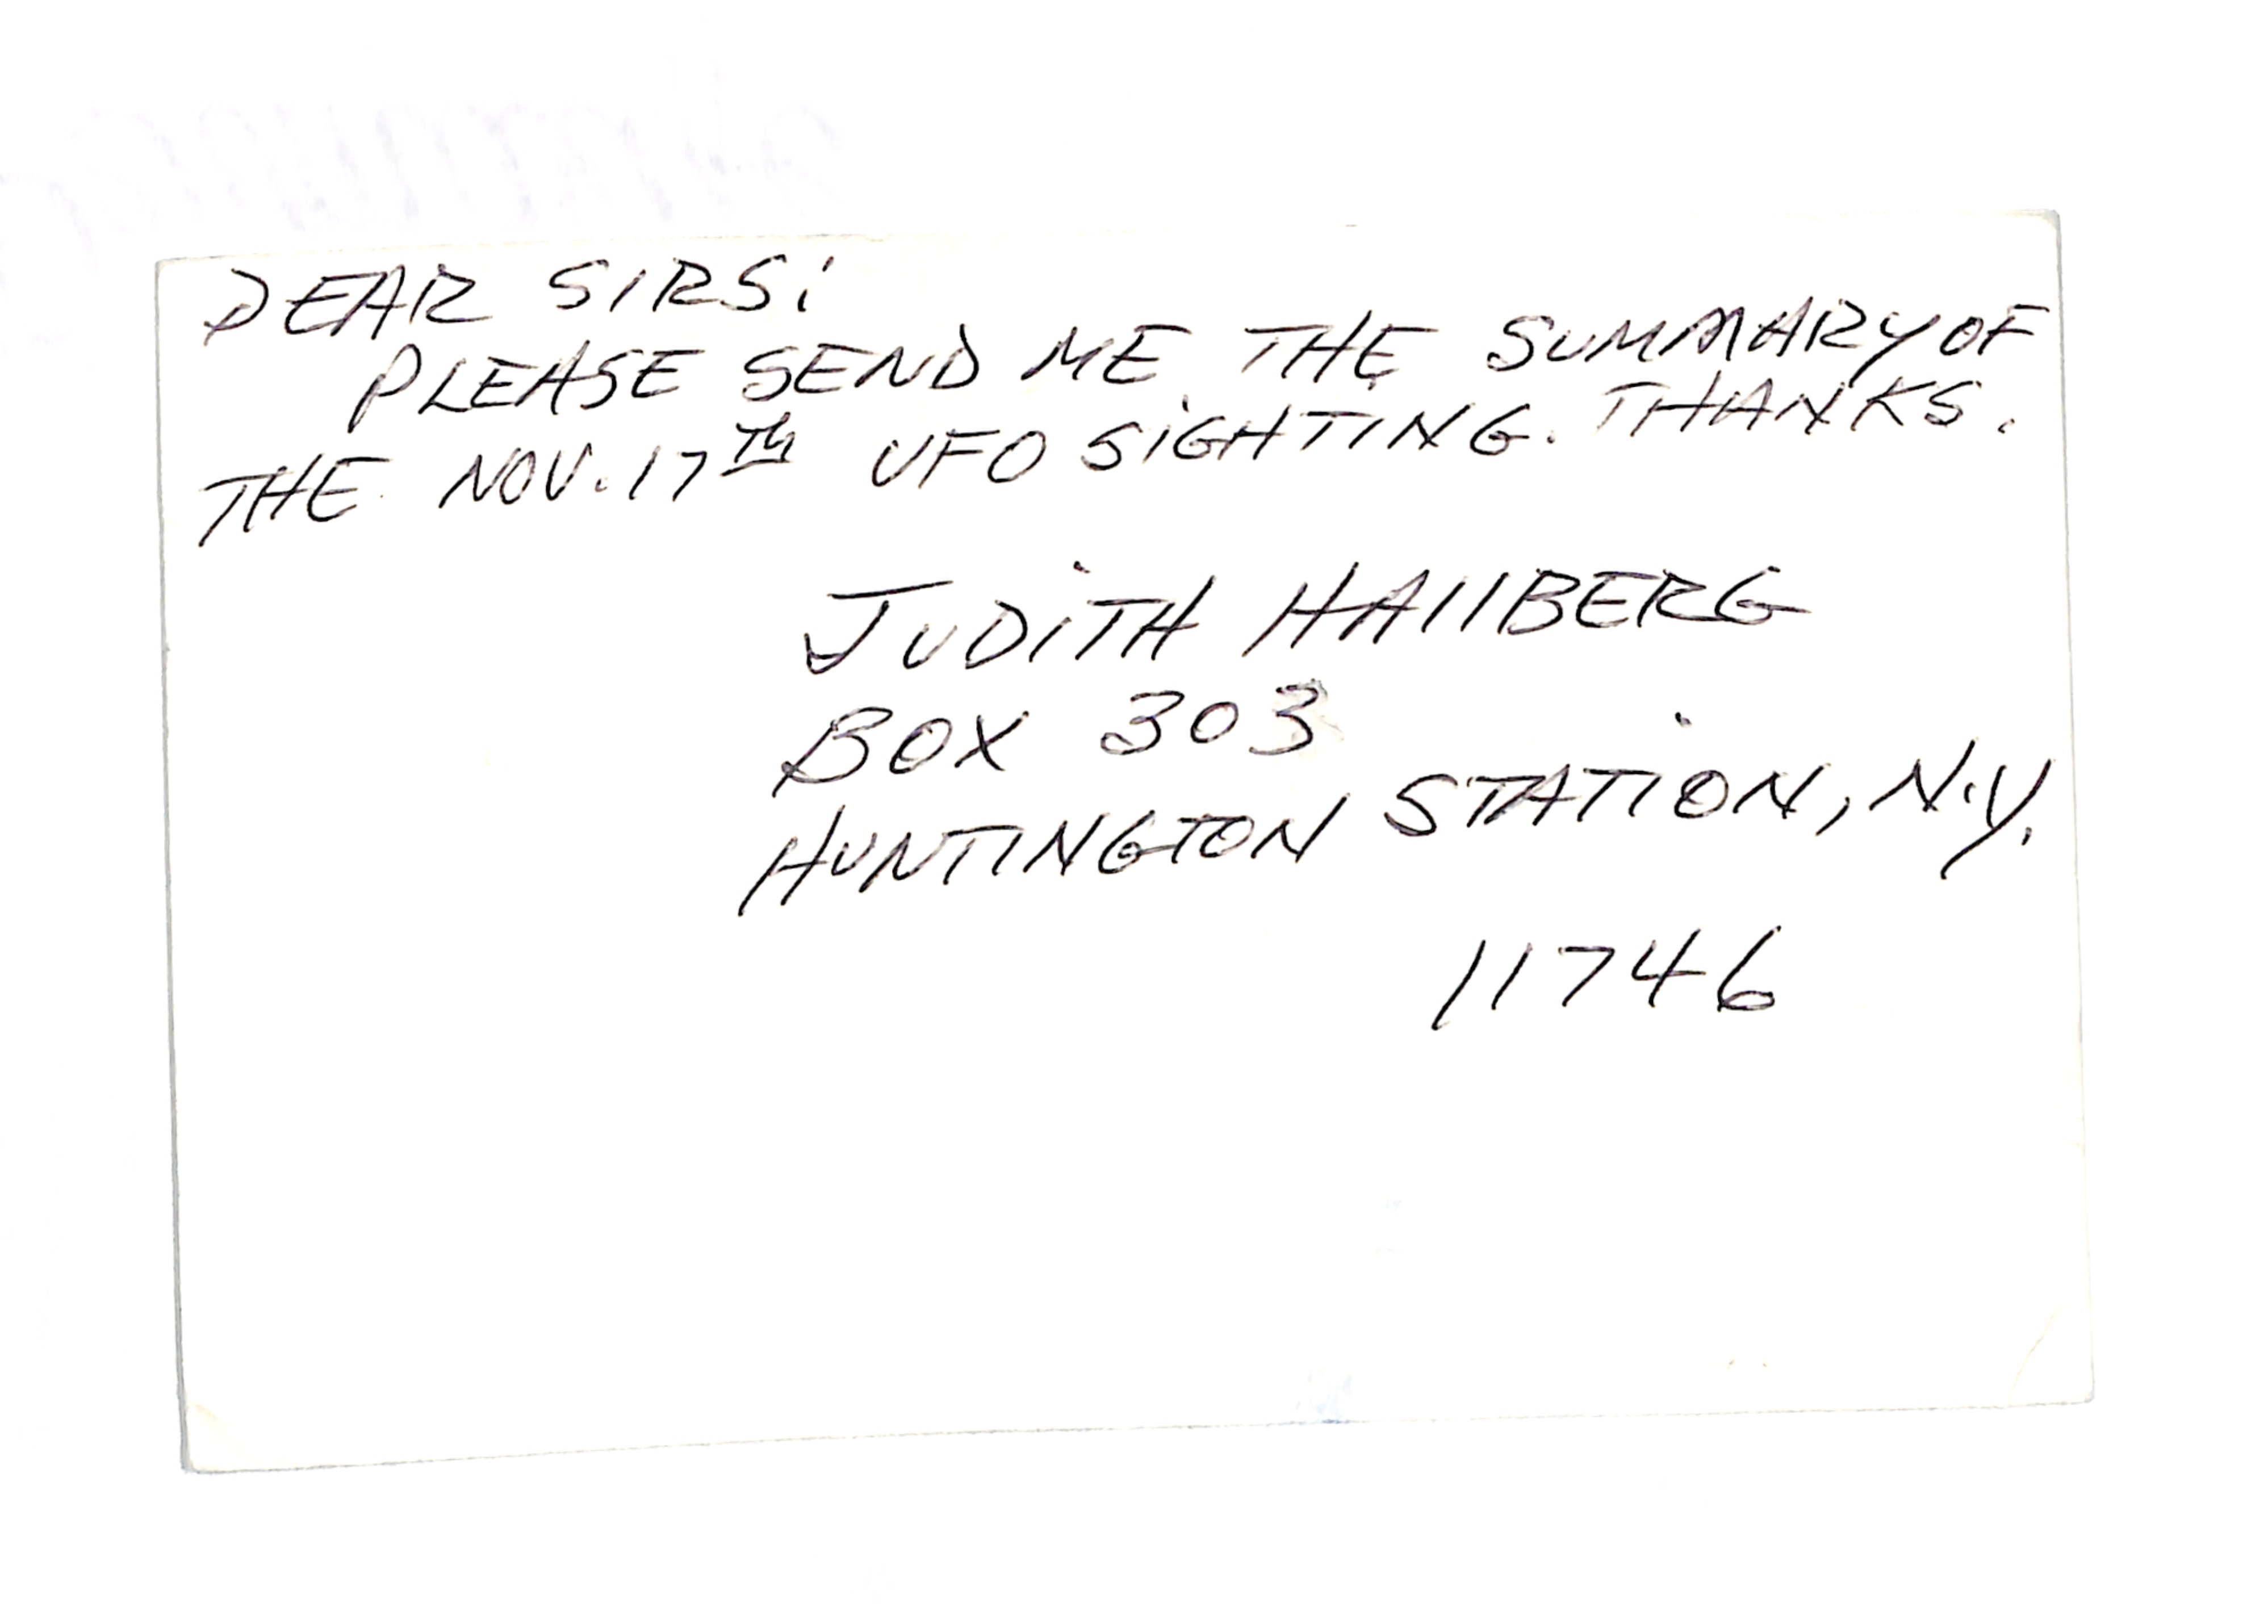 DEAR SIRS:
PLEASE SEND ME THE SUMMARY OF
THE NOV. 17TH UFO SIGHTING. THANKS.
JUDITH HAllBERG
BOX 303
HUNTINGTON STATION, N.Y.
11746